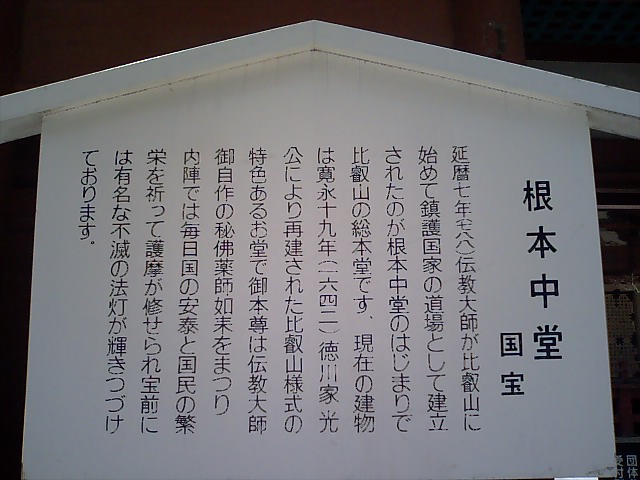 根本中堂
国宝
延暦七年(七八八)伝教大師が比叡山に
始めて鎮護国家の道場として建立
されたのが根本中堂のはじまりで
比叡山の総本堂です、現在の建物
は寛永十九年(一六四二)徳川家光
公により再建された比叡山様式の
特色あるお堂で御本尊は伝教大師
御自作の秘佛薬師如来をまつり
内陣では毎日国の安泰と国民の繁
栄を祈って護摩が修せられ宝前に
は有名な不滅の法灯が輝きつづけ
ております。
団体
受付